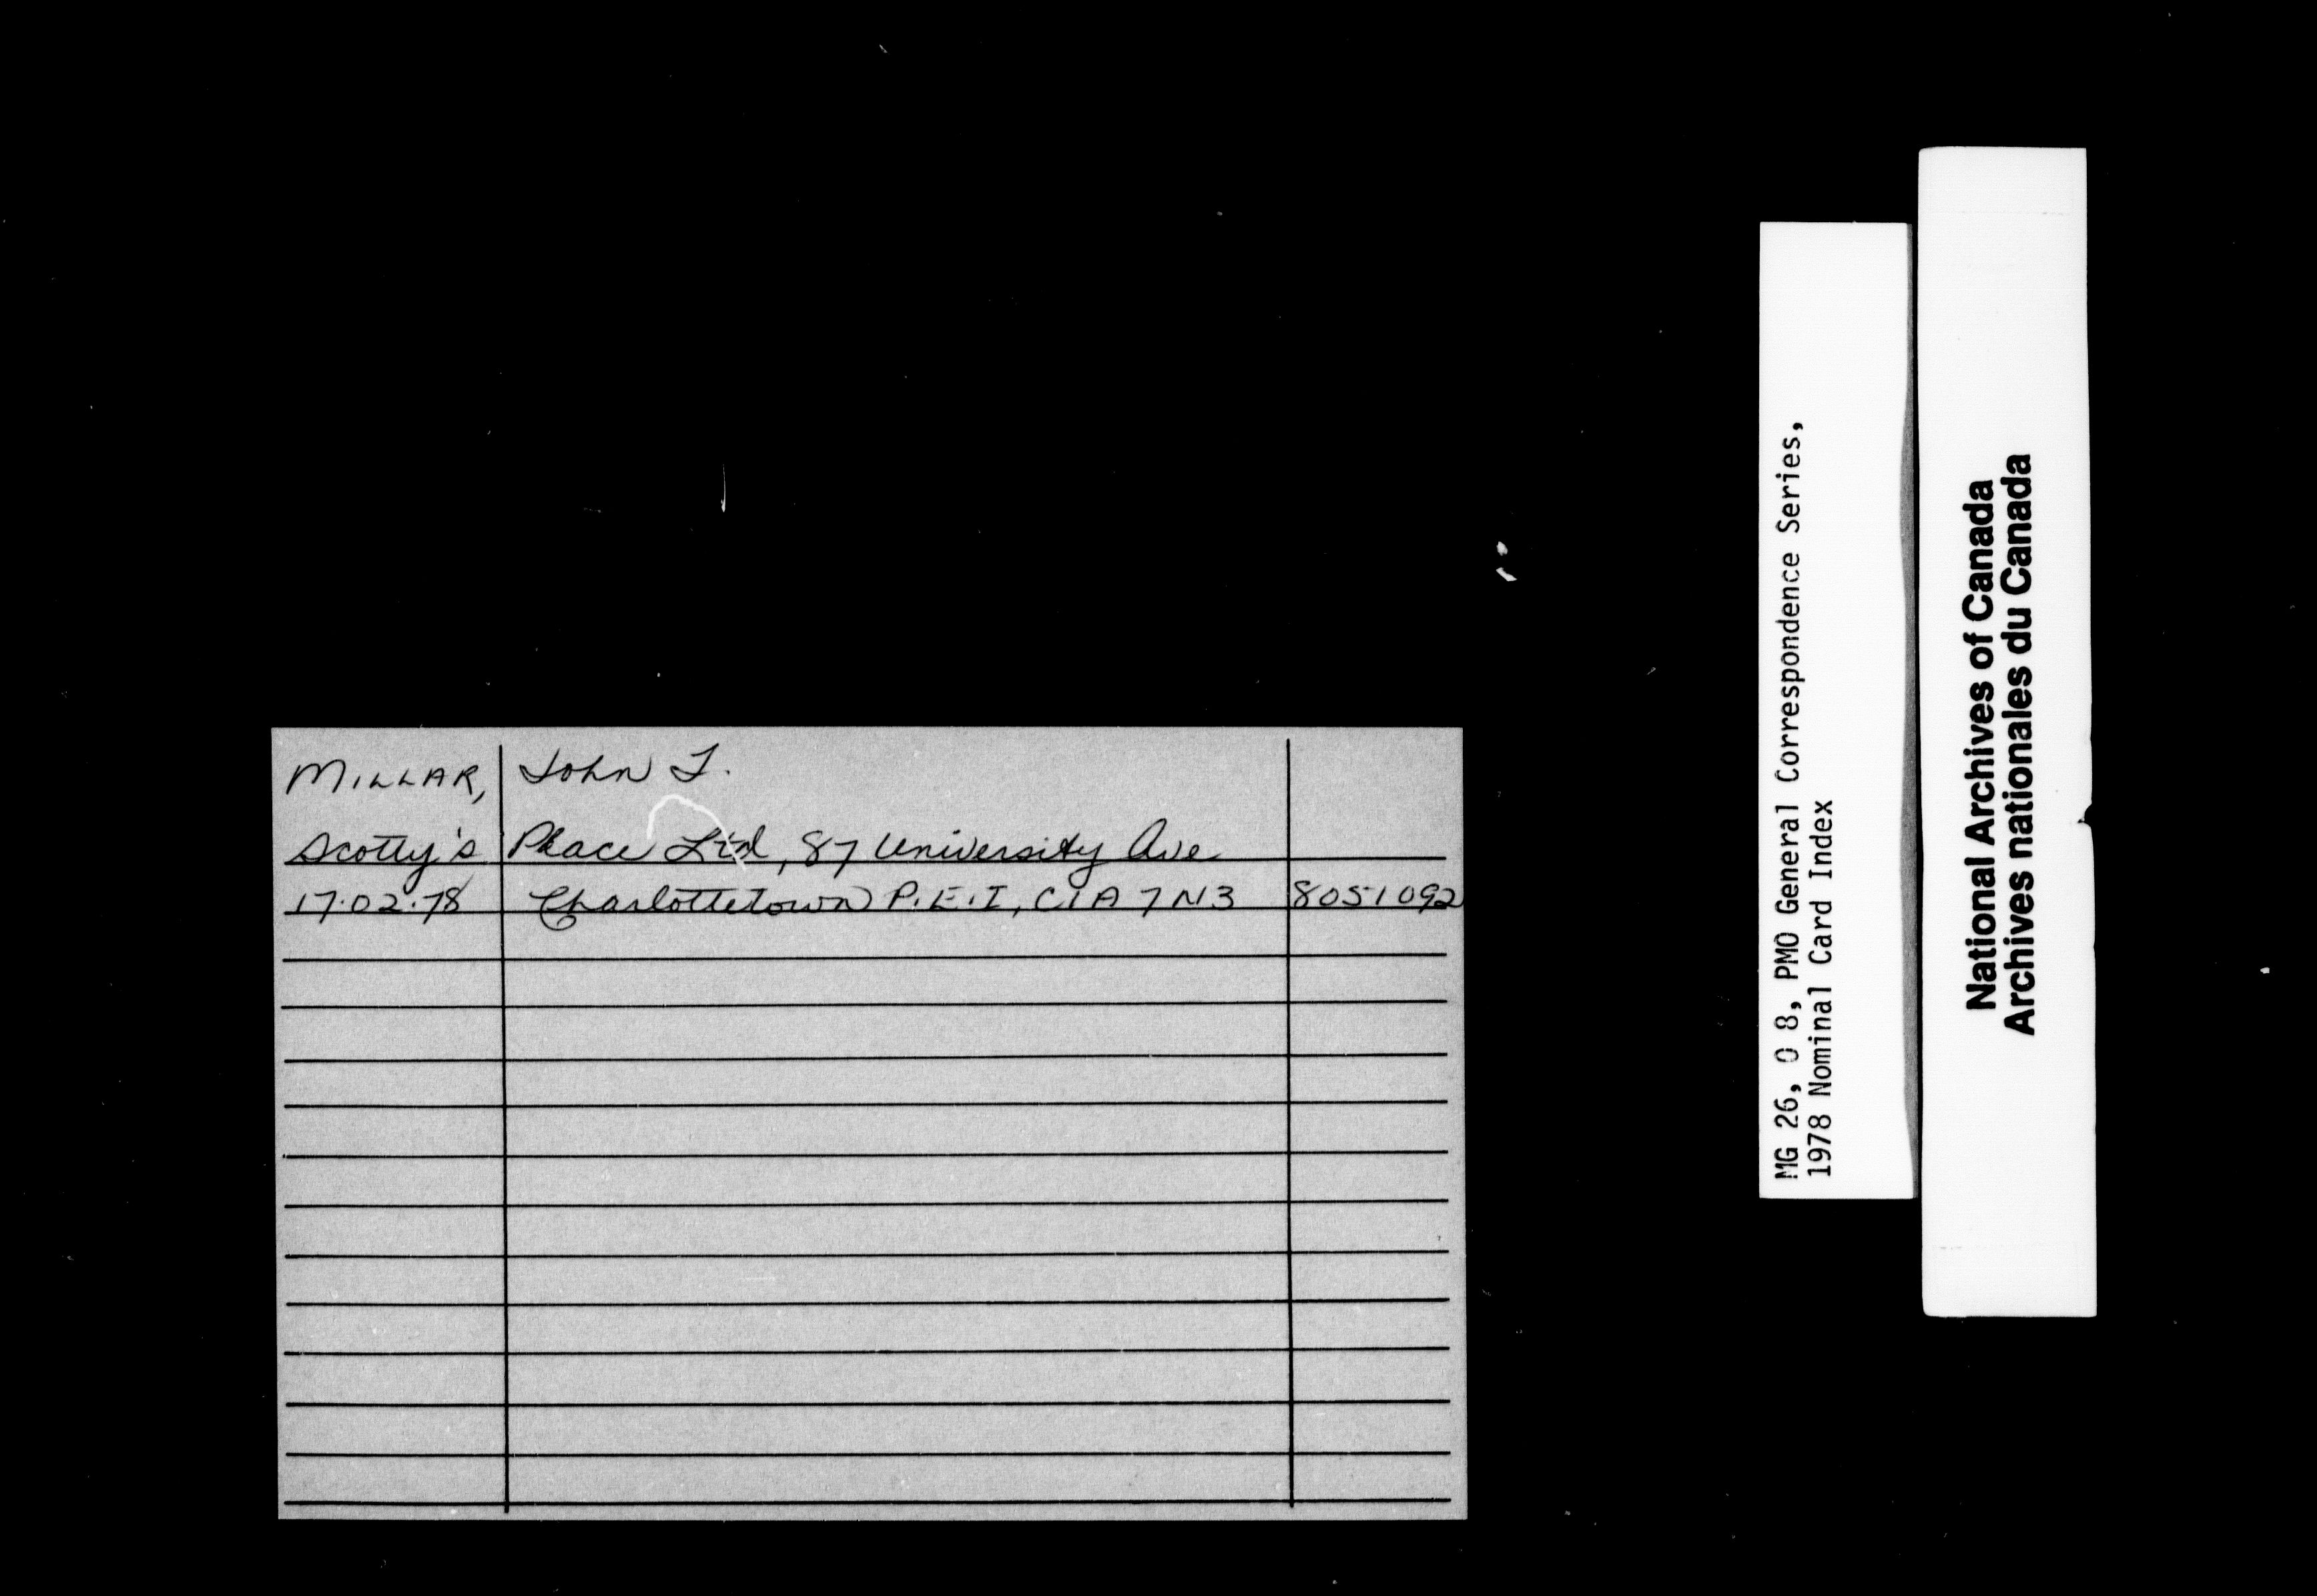 MILLAR, John J.
Scotty's Place Ltd, 87 University Ave
17.02.78 Charlottetown P.E.I, C1A 7N3 8051092
MG 26, O 8, PMO General Correspondence Series,
1978 Nominal Card Index
National Archives of Canada
Archives nationales du Canada